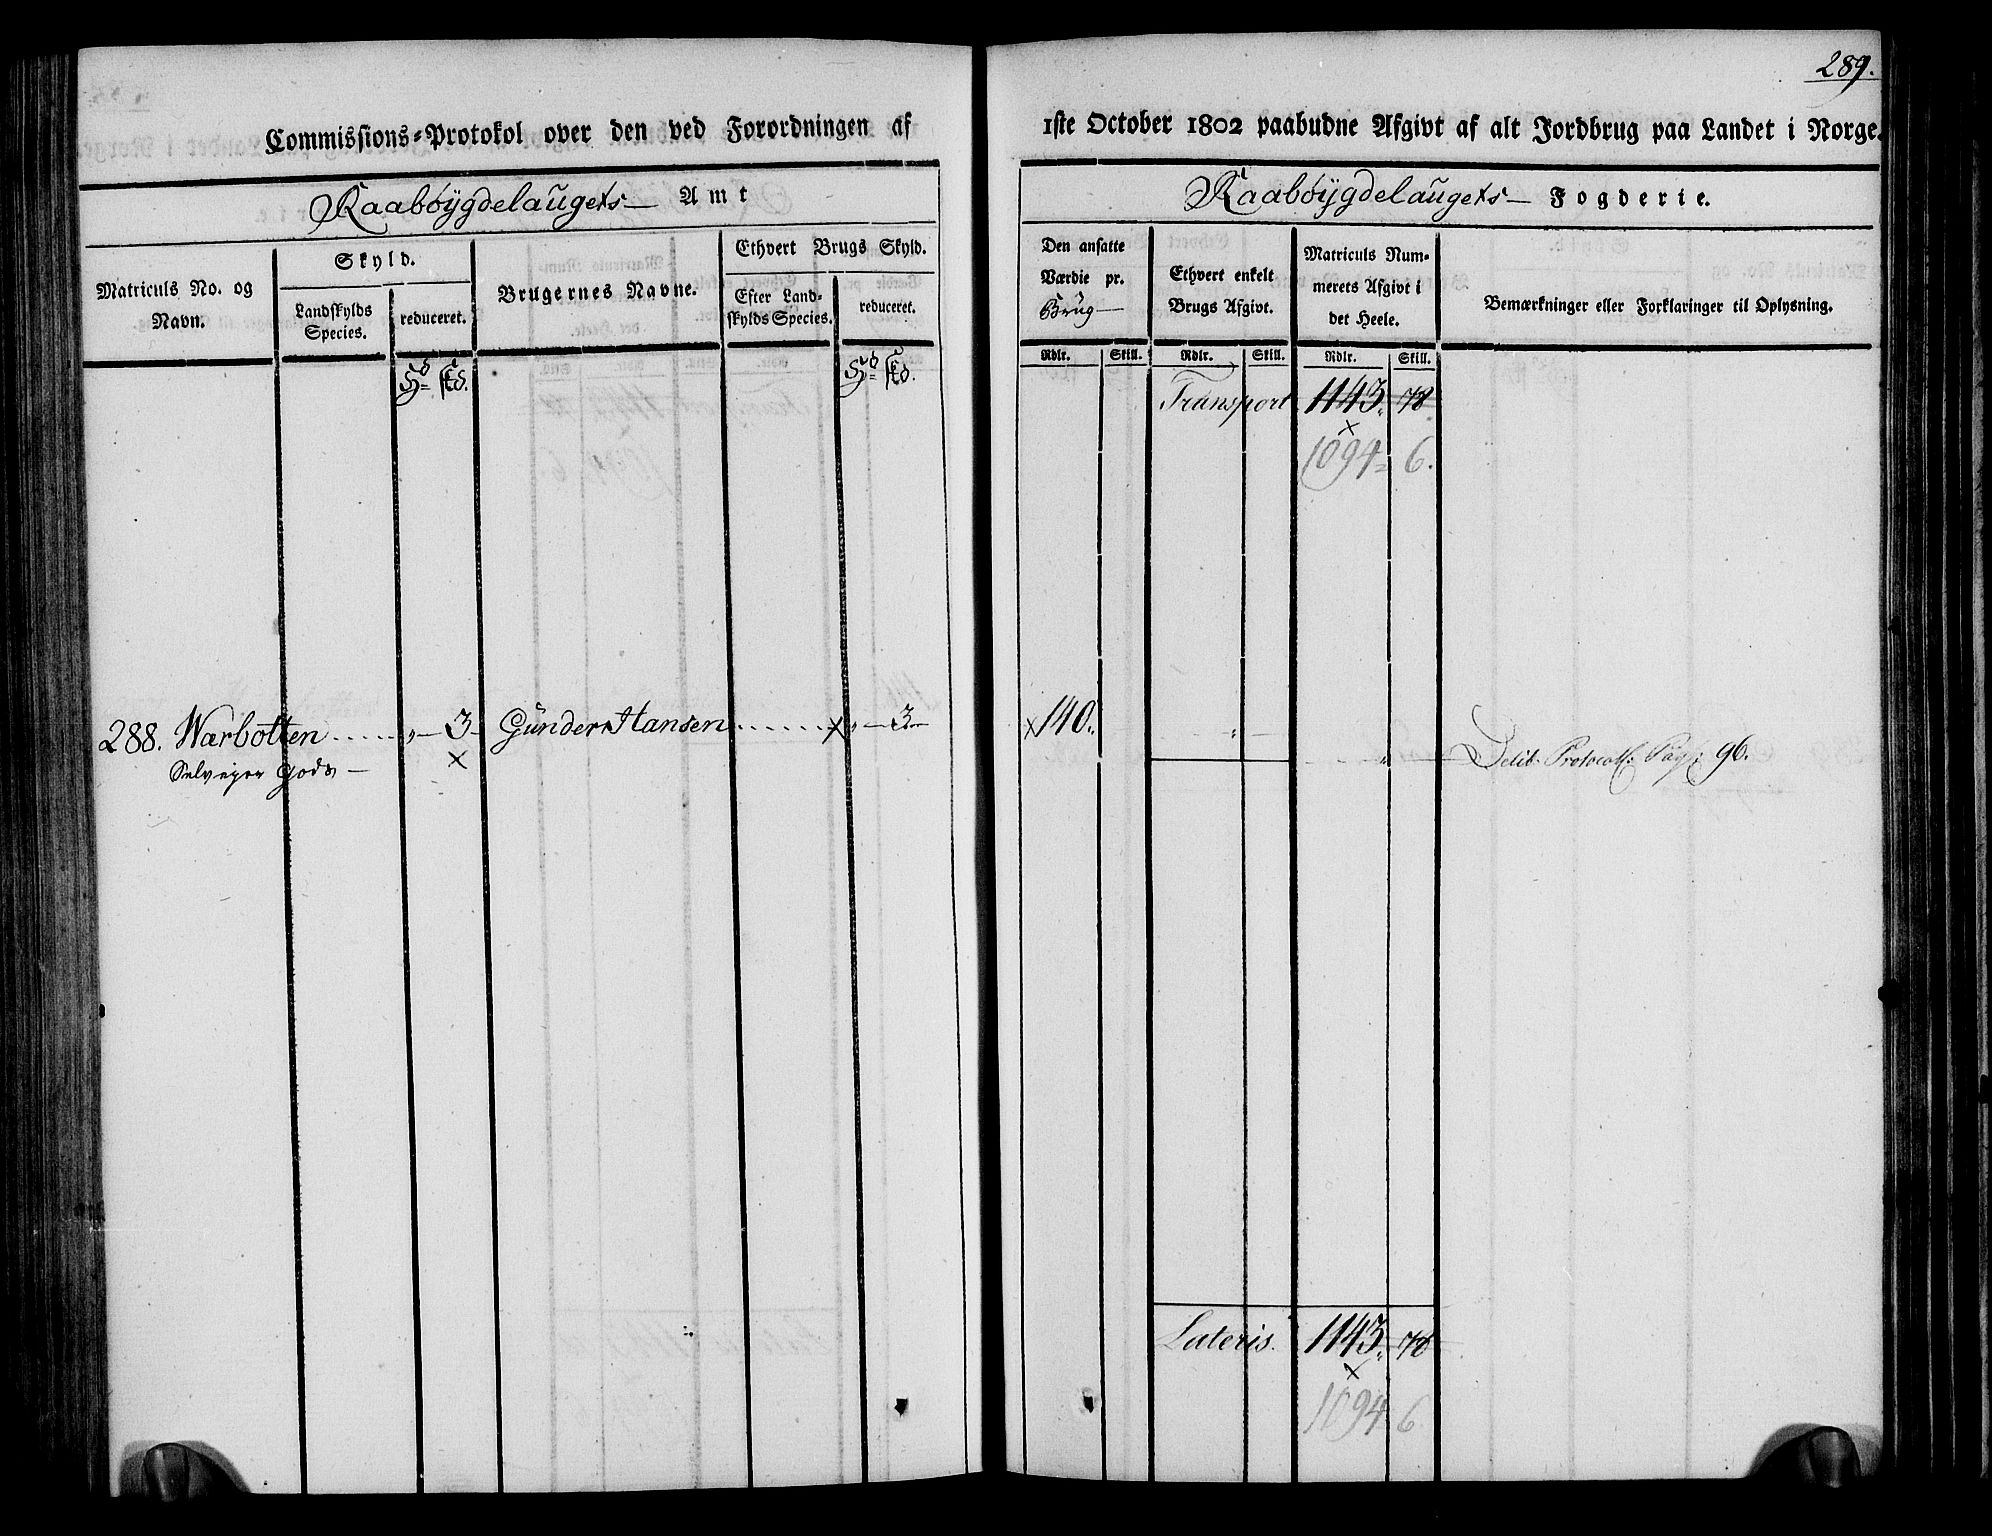 289.
Commissions-Protokol over den ved Forordningen af 1ste October 1802 paabudne Afgivt af alt Jordbrug paa Landet i Norge.
Raabøygdelaugets Amt
Raabøygdelaugets Fogderie.
Matriculs No. og Navn.
Skyld.
Landskylds Species.
reduceret.
Brugernes Navne.
Ethvert Brugs Skyld.
Efter Landskylds Species.
reduceret.
Den ansatte Værdie pr. Brug
Ethvert enkelt Brugs Afgivt.
Matriculs Nummerets Afgivt i det Heele.
Bemærkninger eller Forklaringer til Oplysning.
Rdlr. Skill. Rdlr. Skill. Rdlr. Skill.
Transport 1143. 78.
1094 6.
288. Warbotten ..... „ 3 Gunder Hansen ..... „ 3 140. „ „ Delib. Protocoll: Pag: 96.
Selveiger Gods
Lateris. 1143. 78
1094 6